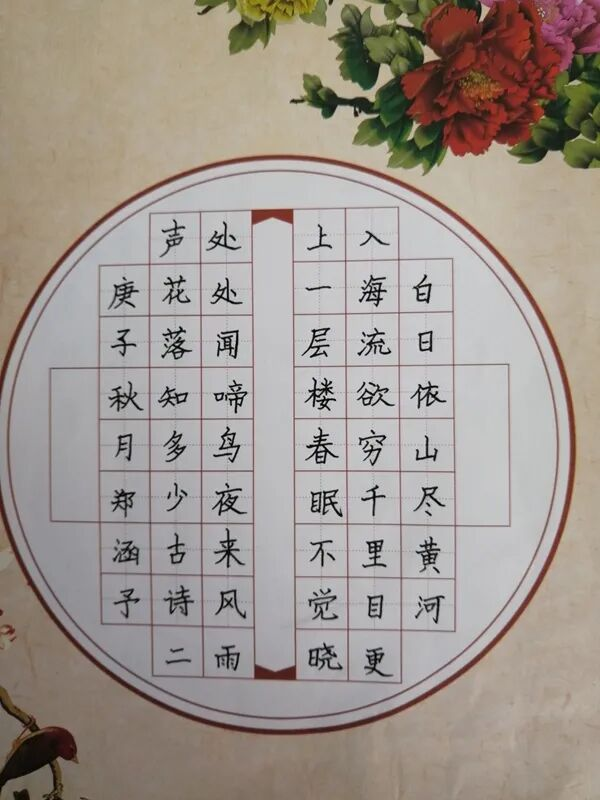 白日依山尽黄河
入海流欲穷千里目更
上一层楼春眠不觉晓
处处闻啼鸟夜来风雨
声花落知多少古诗二
庚子秋月郑涵予